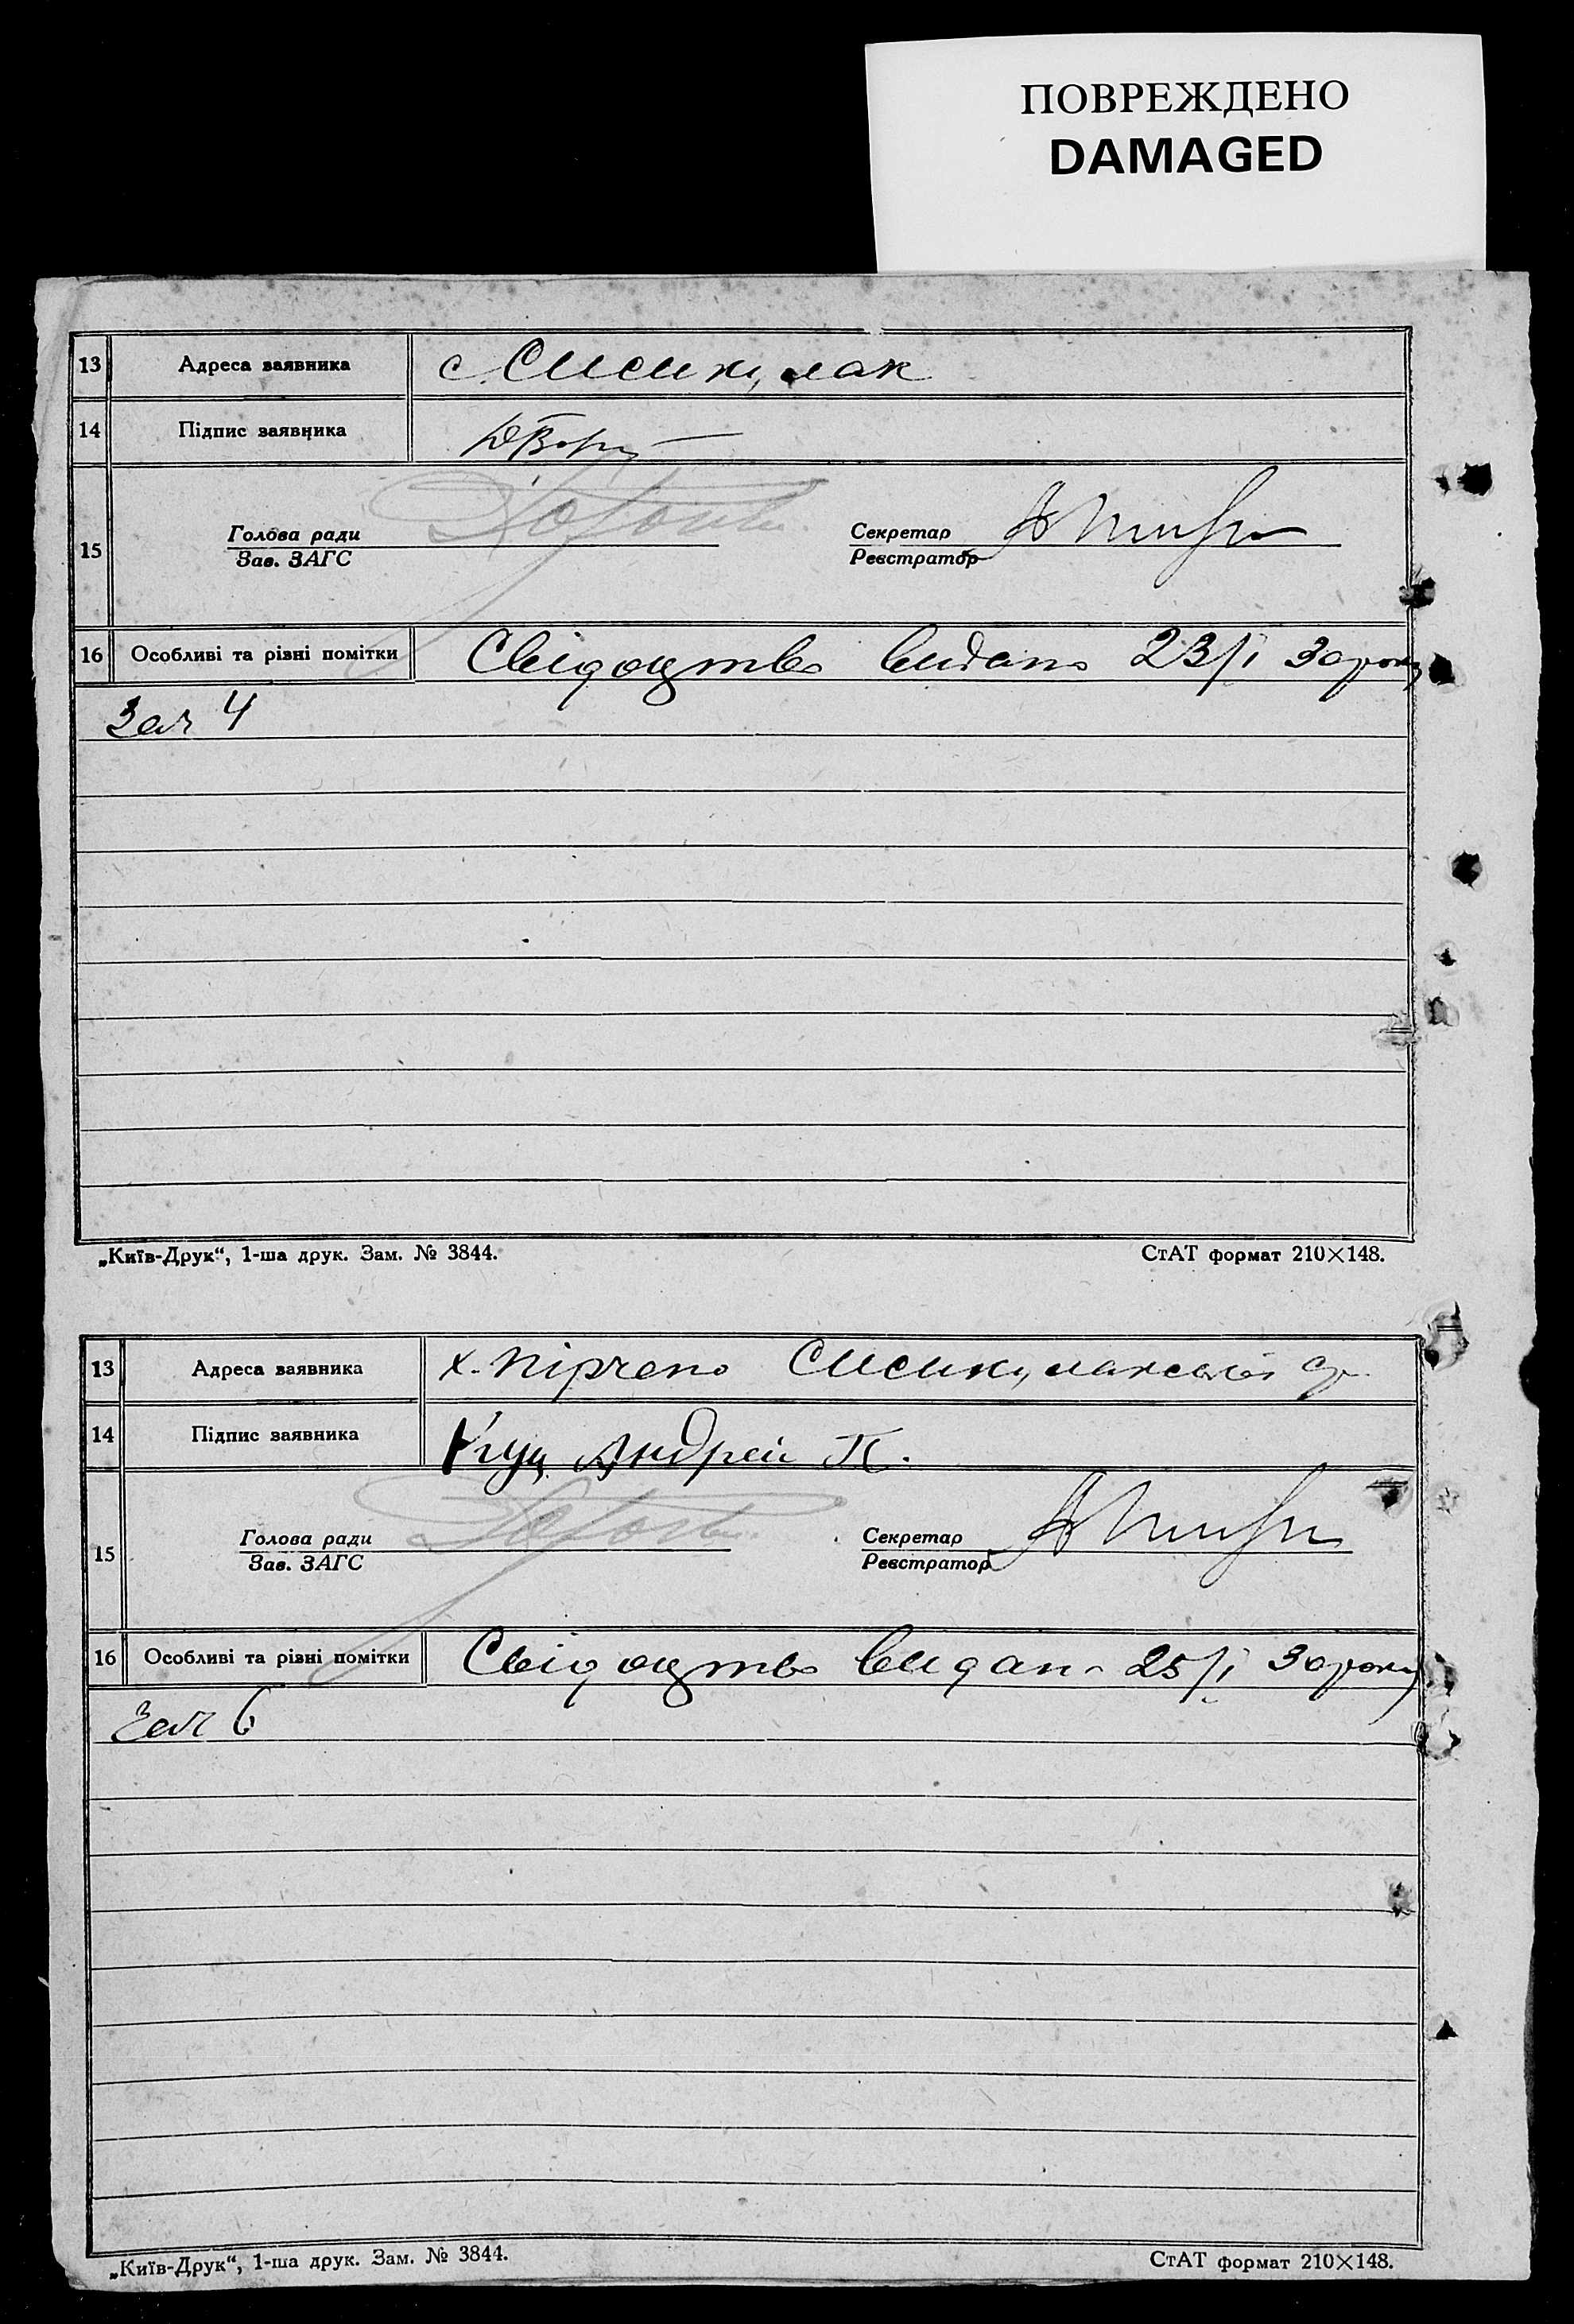 ПОВРЕЖДЕНО
DAMAGED
13 Адреса заявника с.
14 Підпис заявника
15 Голова ради Секретар
Зав. ЗАГС Реєстратор
16 Особливі та різні помітки Свідоцтво видано 23/I 30 року
За № 4
„Київ-Друк“, 1-ша друк. Зам. № 3844. СтАТ формат 210×148.
13 Адреса заявника х.
14 Підпис заявника Андрей П.
15 Голова ради Секретар
Зав. ЗАГС Реєстратор
16 Особливі та різні помітки Свідоцтво видано 25/I 30 року
За № 6
„Київ-Друк“, 1-ша друк. Зам. № 3844. СтАТ формат 210×148.